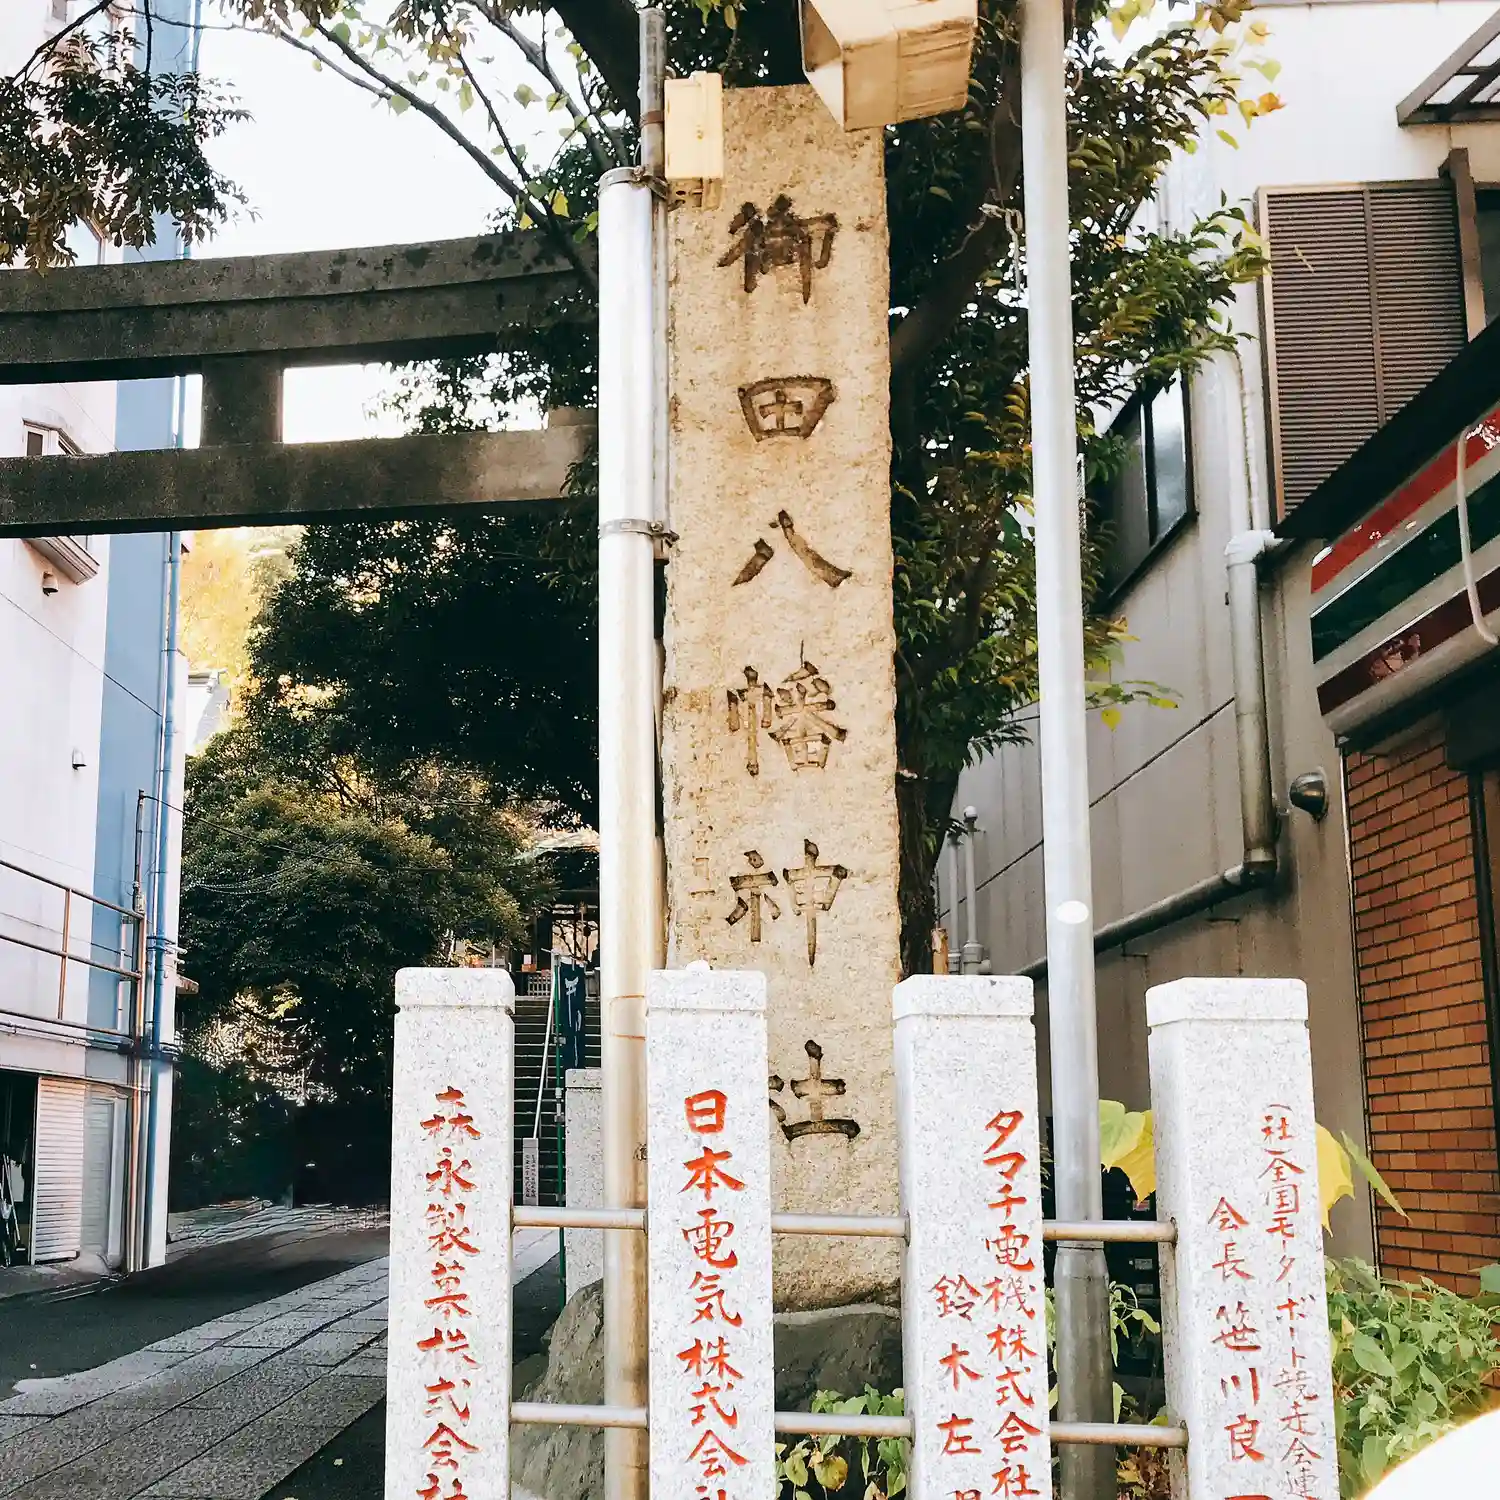 御田八幡神社
森永製菓株式会社
日本電気株式会社
タマチ電機株式会社
鈴木左
(社)全国モーターボート競走会連
会長笹川良